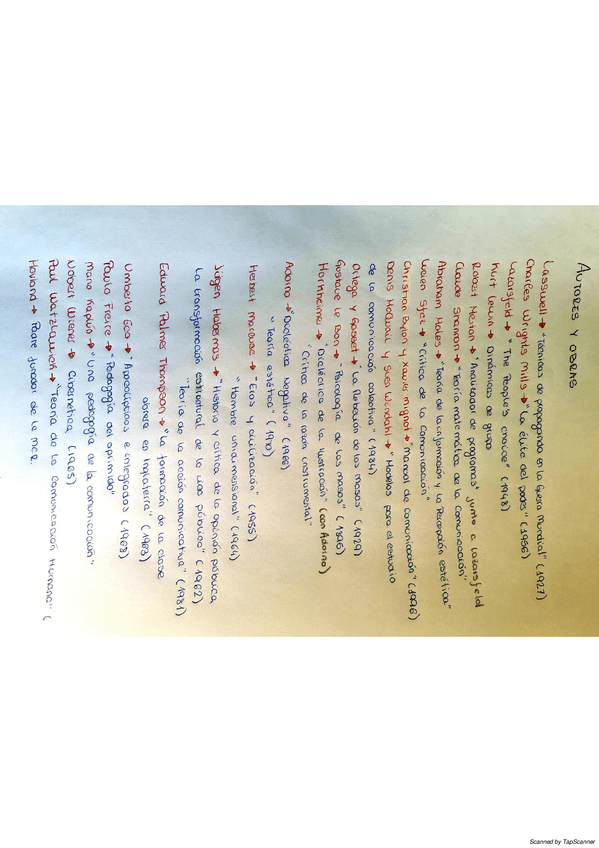 AUTORES Y OBRAS
Lasswell → "Técnicas de propaganda en la Guerra Mundial" (1927)
Charles Wrights Mills → "La élite del poder" (1956)
Lazarsfeld → "The People's choice" (1948)
Kurt Lewin → Dinámicas de grupo
Robert Merton → "Analizador de programas" junto a Lazarsfeld
Claude Shannon → "Teoría matemática de la Comunicación"
Abraham Moles → "Teoría de la información y la Percepción estética"
"Crítica de la Comunicación"
Christian Baylon y Xavier Mignot → "Manual de comunicación" (1996)
Denis McQuail y Sven Windahl → "Modelos para el estudio
de la comunicación colectiva" (1984)
Ortega y Gasset → "La Rebelión de las masas" (1929)
Gustave Le Bon → "Psicología de las masas" (1896)
Horkheimer → "Dialéctica de la Ilustración" (con Adorno)
"Crítica de la razón instrumental"
Adorno → "Dialéctica Negativa" (1966)
"Teoría estética" (1970)
Herbert Marcuse → "Eros y civilización" (1955)
"Hombre unidimensional" (1964)
Jürgen Habermas → "Historia y crítica de la opinión pública
La transformación estructural de la vida pública" (1962)
"Teoría de la acción comunicativa" (1981)
Edward Palmer Thompson → "La formación de la clase
obrera en Inglaterra" (1963)
Umberto Eco → "Apocalípticos e integrados" (1968)
Paulo Freire → "Pedagogía del oprimido"
Mario Kaplún → "Una pedagogía de la comunicación"
Nobert Wiener → Cibernética (1965)
Paul Watzlawick → "Teoría de la comunicación humana" (
Hovland → Padre fundador de la MCR.
Scanned by TapScanner